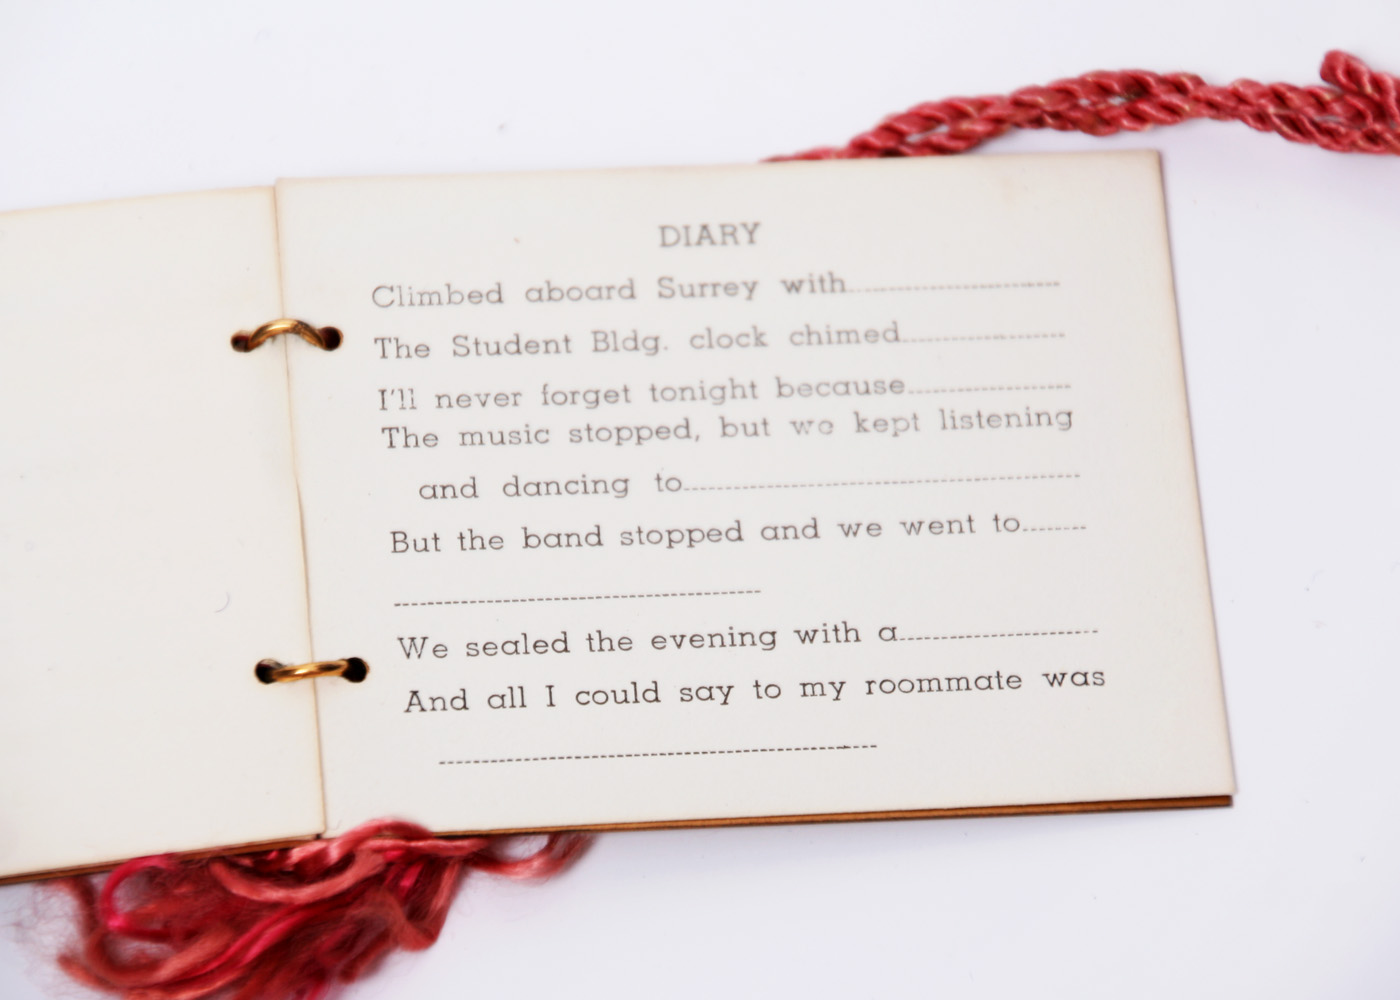 DIARY
Climbed aboard Surrey with
The Student Bldg. clock chimed
I'll never forget tonight because
The music stopped, but we kept listening
and dancing to
But the band stopped and we went to
We sealed the evening with a
And all I could say to my roommate was